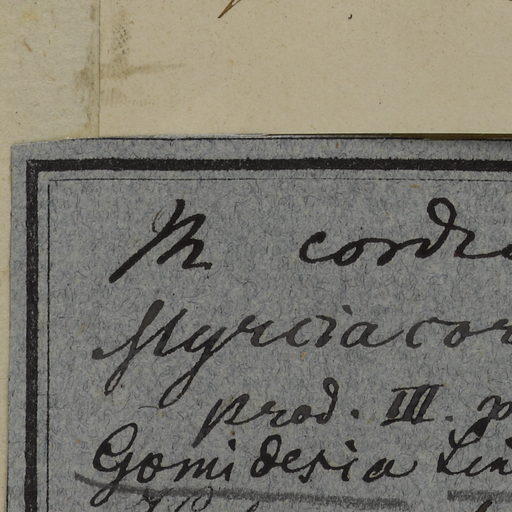 M cord
Myrcia cor
prod. III. p
Gomidesia Lin